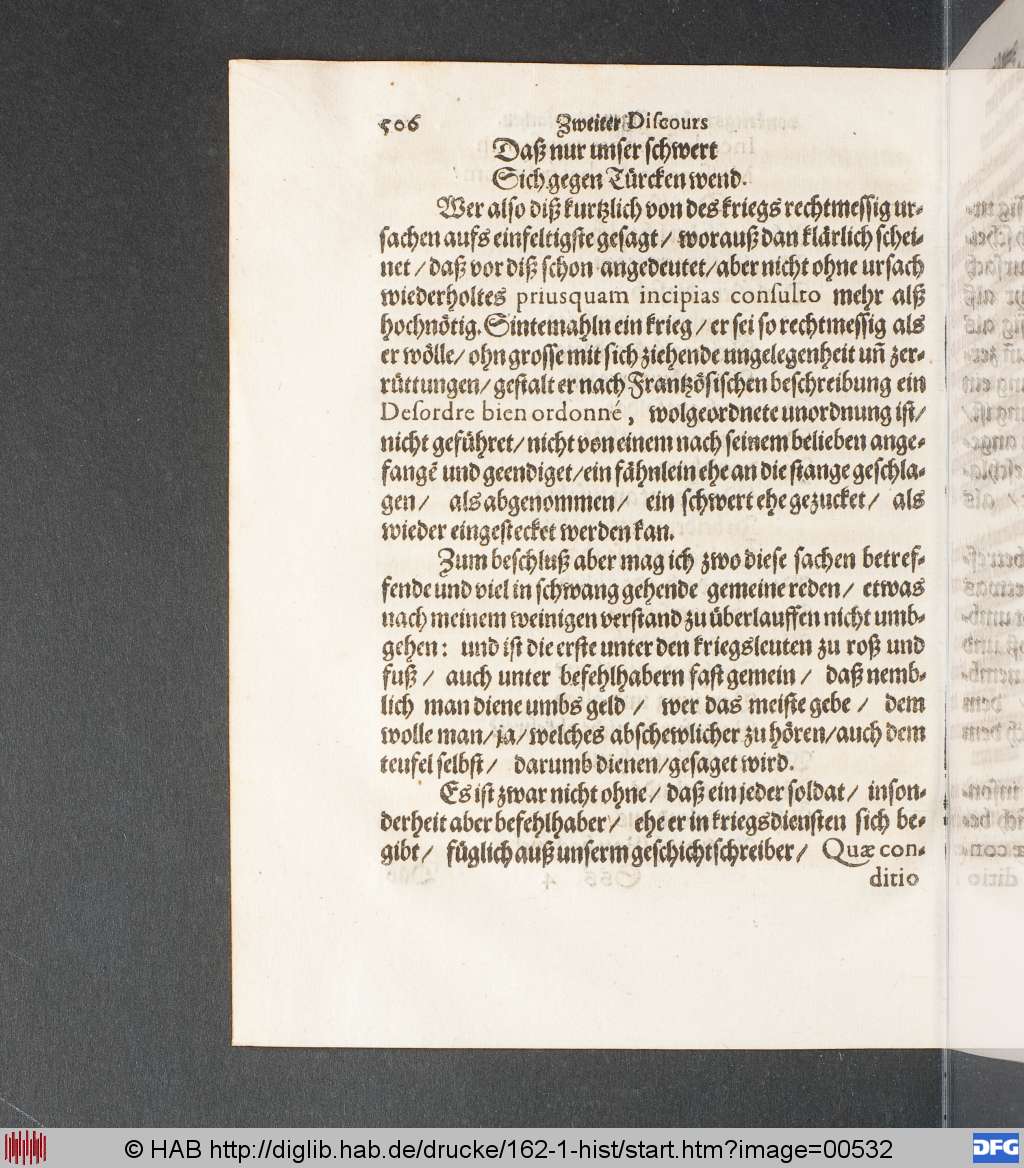 506 Zweiter Discours
Daß nur unser schwert
Sich gegen Türcken wend.
Wer also diß kurtzlich von des kriegs rechtmessig ur-
sachen aufs einfeltigste gesagt / worauß dan klärlich schei-
net / daß vor diß schon angedeutet / aber nicht ohne ursach
wiederholtes priusquam incipias consulto mehr alß
hochnötig. Sintemahln ein krieg / er sei so rechtmessig als
er wölle / ohn grosse mit sich ziehende ungelegenheit uñ zer-
rüttungen / gestalt er nach Frantzösischen beschreibung ein
Desordre bien ordonné, wolgeordnete unordnung ist /
nicht geführet / nicht von einem nach seinem belieben ange-
fangẽ und geendiget / ein fähnlein ehe an die stange geschla-
gen / als abgenommen / ein schwert ehe gezucket / als
wieder eingestecket werden kan.
Zum beschluß aber mag ich zwo diese sachen betref-
fende und viel in schwang gehende gemeine reden / etwas
nach meinem weinigen verstand zu überlauffen nicht umb-
gehen: und ist die erste unter den kriegsleuten zu roß und
fuß / auch unter befehlhabern fast gemein / daß nemb-
lich man diene umbs geld / wer das meiste gebe / dem
wolle man / ja / welches abschewlicher zu hören / auch dem
teufel selbst / darumb dienen / gesaget wird.
Es ist zwar nicht ohne / daß ein jeder soldat / inson-
derheit aber befehlhaber / ehe er in kriegsdiensten sich be-
gibt / füglich auß unserm geschichtschreiber / Quæ con-
ditio
© HAB http://diglib.hab.de/drucke/162-1-hist/start.htm?image=00532
DFG